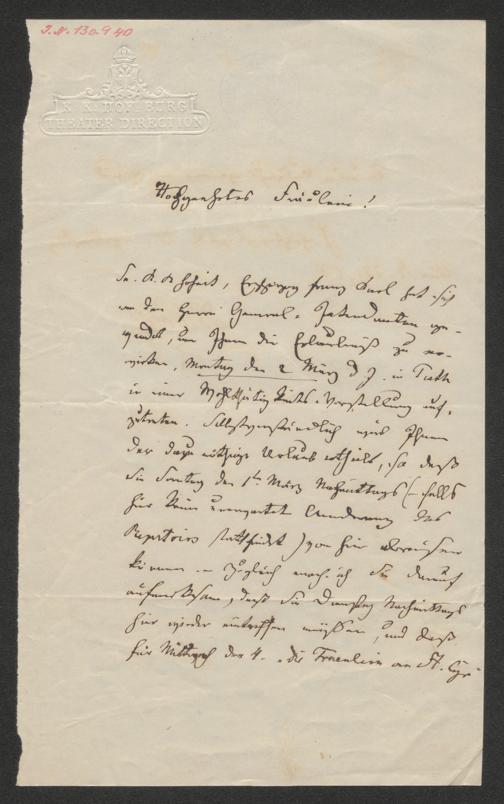 J.N. 130.940
K. K. HOFBURG
THEATER DIRECTION
Hochgeehrtes Fräulein!
Se. K. Hoheit, Erzherzog Franz Carl hat sich
an den Herrn General-Intendanten ge-
wendet, um Ihnen die Erlaubniß zu er-
wirken, Montag den 2 März d. J. in
in einer Wohlthätigkeits-Vorstellung auf-
zutreten. Selbstverständlich wird Ihnen
der dazu nöthige Urlaub ertheilt, so daß
Sie Sontag den 1t. März Nachmittags (– falls
hier keine unerwartete Aenderung des
Repertoirs stattfindet) von hier abreisen
können – Zugleich mache ich Sie darauf
aufmerksam, daß Sie Dienstag Nachmittags
hier wieder eintreffen müssen, und daß
für Mittwoch den 4. „die Fräulein von St. Cyr"